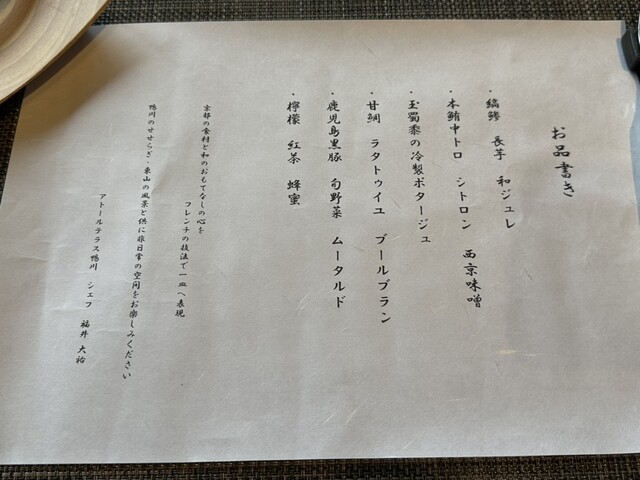 お品書き
・縞鯵 長芋 和ジュレ
・本鮪中トロ シトロン 西京味噌
・玉蜀黍の冷製ポタージュ
・甘鯛 ラタトゥイユ ブールブラン
・鹿児島黒豚 旬野菜 ムータルド
・檸檬 紅茶 蜂蜜
京都の食材と和のおもてなしの心を
フレンチの技法で一皿へ表現
鴨川のせせらぎ・東山の風景と供に非日常の空間をお楽しみください
アトールテラス鴨川 シェフ 福井 大祐